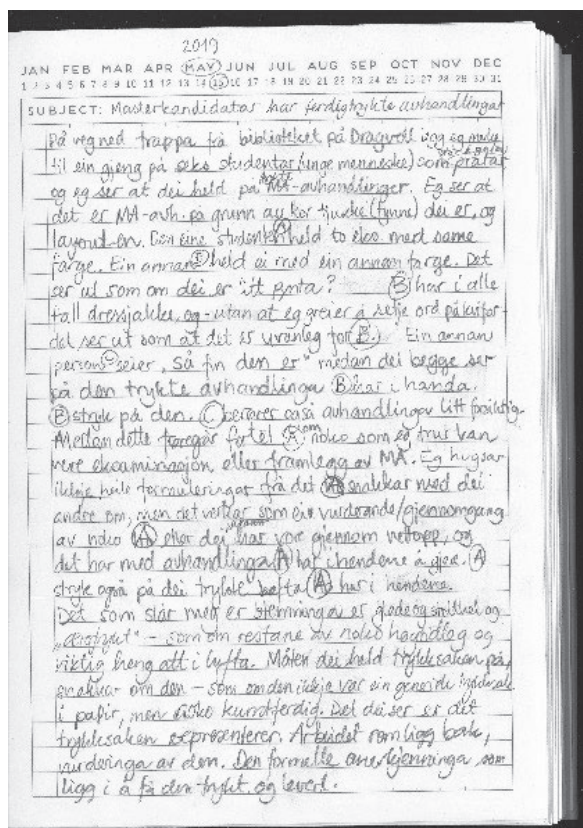 2019
JAN FEB MAR APR MAY JUN JUL AUG SEP OCT NOV DEC
1 2 3 4 5 6 7 8 9 10 11 12 13 14 15 16 17 18 19 20 21 22 23 24 25 26 27 28 29 30 31
SUBJECT: Masterkandidatar har ferdigtrykte avhandlingar
På veg ned trappa frå biblioteket på Dragvoll
til ein gjeng på seks studentar (unge menneske) som pratar
og eg ser at dei held på trykte MA-avhandlinger. Eg ser at
det er MA-avh. på grunn av kor tjukke (tynne) dei er, og
layouten. eine studenten A held to eks. med same
farge. Ein annan B held ei med ein annan farge. Det
ser ut som om dei er B har i alle
fall dressjakke, og - utan at eg greier å setje ord på kvifor -
det ser ut som at det er uvanleg for B. Ein annan
person C seier "Så fin den er" medan dei begge ser
på den trykte avhandlinga B har i handa.
B stryk på den. C også avhandlinga litt forsiktig.
Medan dette foregår fortel A om noko som eg trur kan
vere eksaminasjon, eller framlegg av MA. Eg hugsar
ikkje heile formuleringar frå det A snakkar med dei
andre om, men det verkar som ein vurderande/gjennomgang
av noko A eller dei har vore gjennom nettopp, og
det har med avhandlinga A har i hendene å gjea. A
stryk også på dei trykte hefta A har i hendene.
Det som slår meg er stemninga er glede og og
"ærefrykt" - som om restane av noko høgtideleg og
viktig heng att i lufta. Måten dei held trykksaken på,
snakkar om den - som om den ikkje var ein
i papir, men noko kunstferdig. Det dei ser er det
trykksaken representerer. Arbeidet som ligg bak,
vurderinga av den. Den formelle anerkjenninga som
ligg i å få den trykt og levert.